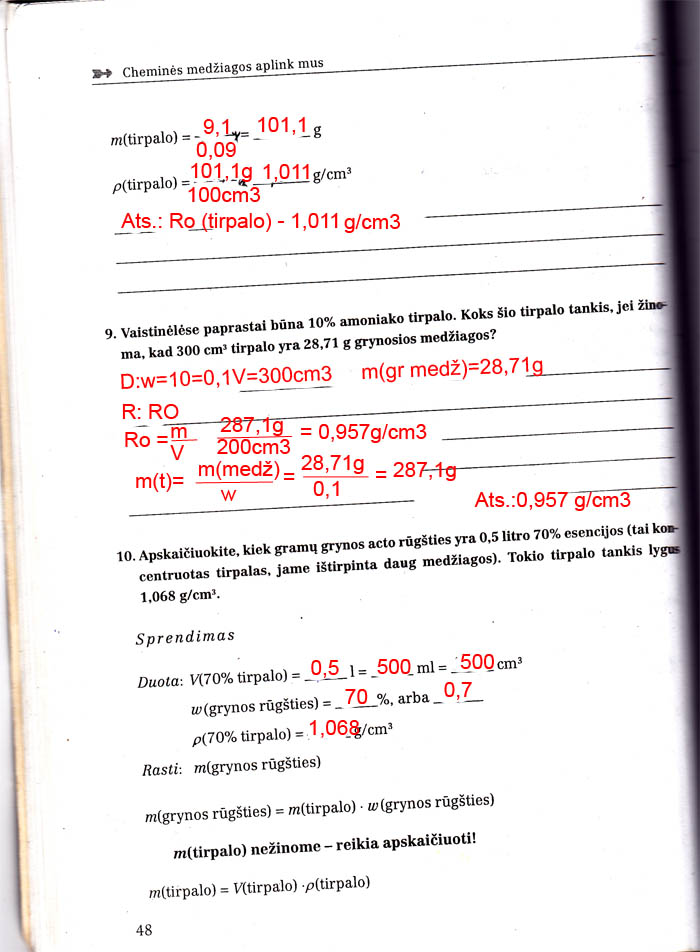 Cheminės medžiagos aplink mus
m(tirpalo) = 9,1 / 0,09 = 101,1 g
ρ(tirpalo) = 101,1g / 100cm3 1,011 g/cm³
Ats.: Ro (tirpalo) - 1,011 g/cm3
9. Vaistinėlėse paprastai būna 10% amoniako tirpalo. Koks šio tirpalo tankis, jei žino-
ma, kad 300 cm³ tirpalo yra 28,71 g grynosios medžiagos?
D:w=10=0,1V=300cm3 m(gr medž)=28,71g
R: RO
Ro = m / V 287,1g / 200cm3 = 0,957g/cm3
m(t)= m(medž) / w = 28,71g / 0,1 = 287,1g
Ats.:0,957 g/cm3
10. Apskaičiuokite, kiek gramų grynos acto rūgšties yra 0,5 litro 70% esencijos (tai kon-
centruotas tirpalas, jame ištirpinta daug medžiagos). Tokio tirpalo tankis lygus
1,068 g/cm³.
Sprendimas
Duota: V(70% tirpalo) = 0,5 l = 500 ml = 500 cm³
w(grynos rūgšties) = 70 %, arba 0,7
ρ(70% tirpalo) = 1,068 g/cm³
Rasti: m(grynos rūgšties)
m(grynos rūgšties) = m(tirpalo) · w(grynos rūgšties)
m(tirpalo) nežinome – reikia apskaičiuoti!
m(tirpalo) = V(tirpalo) ·ρ(tirpalo)
48